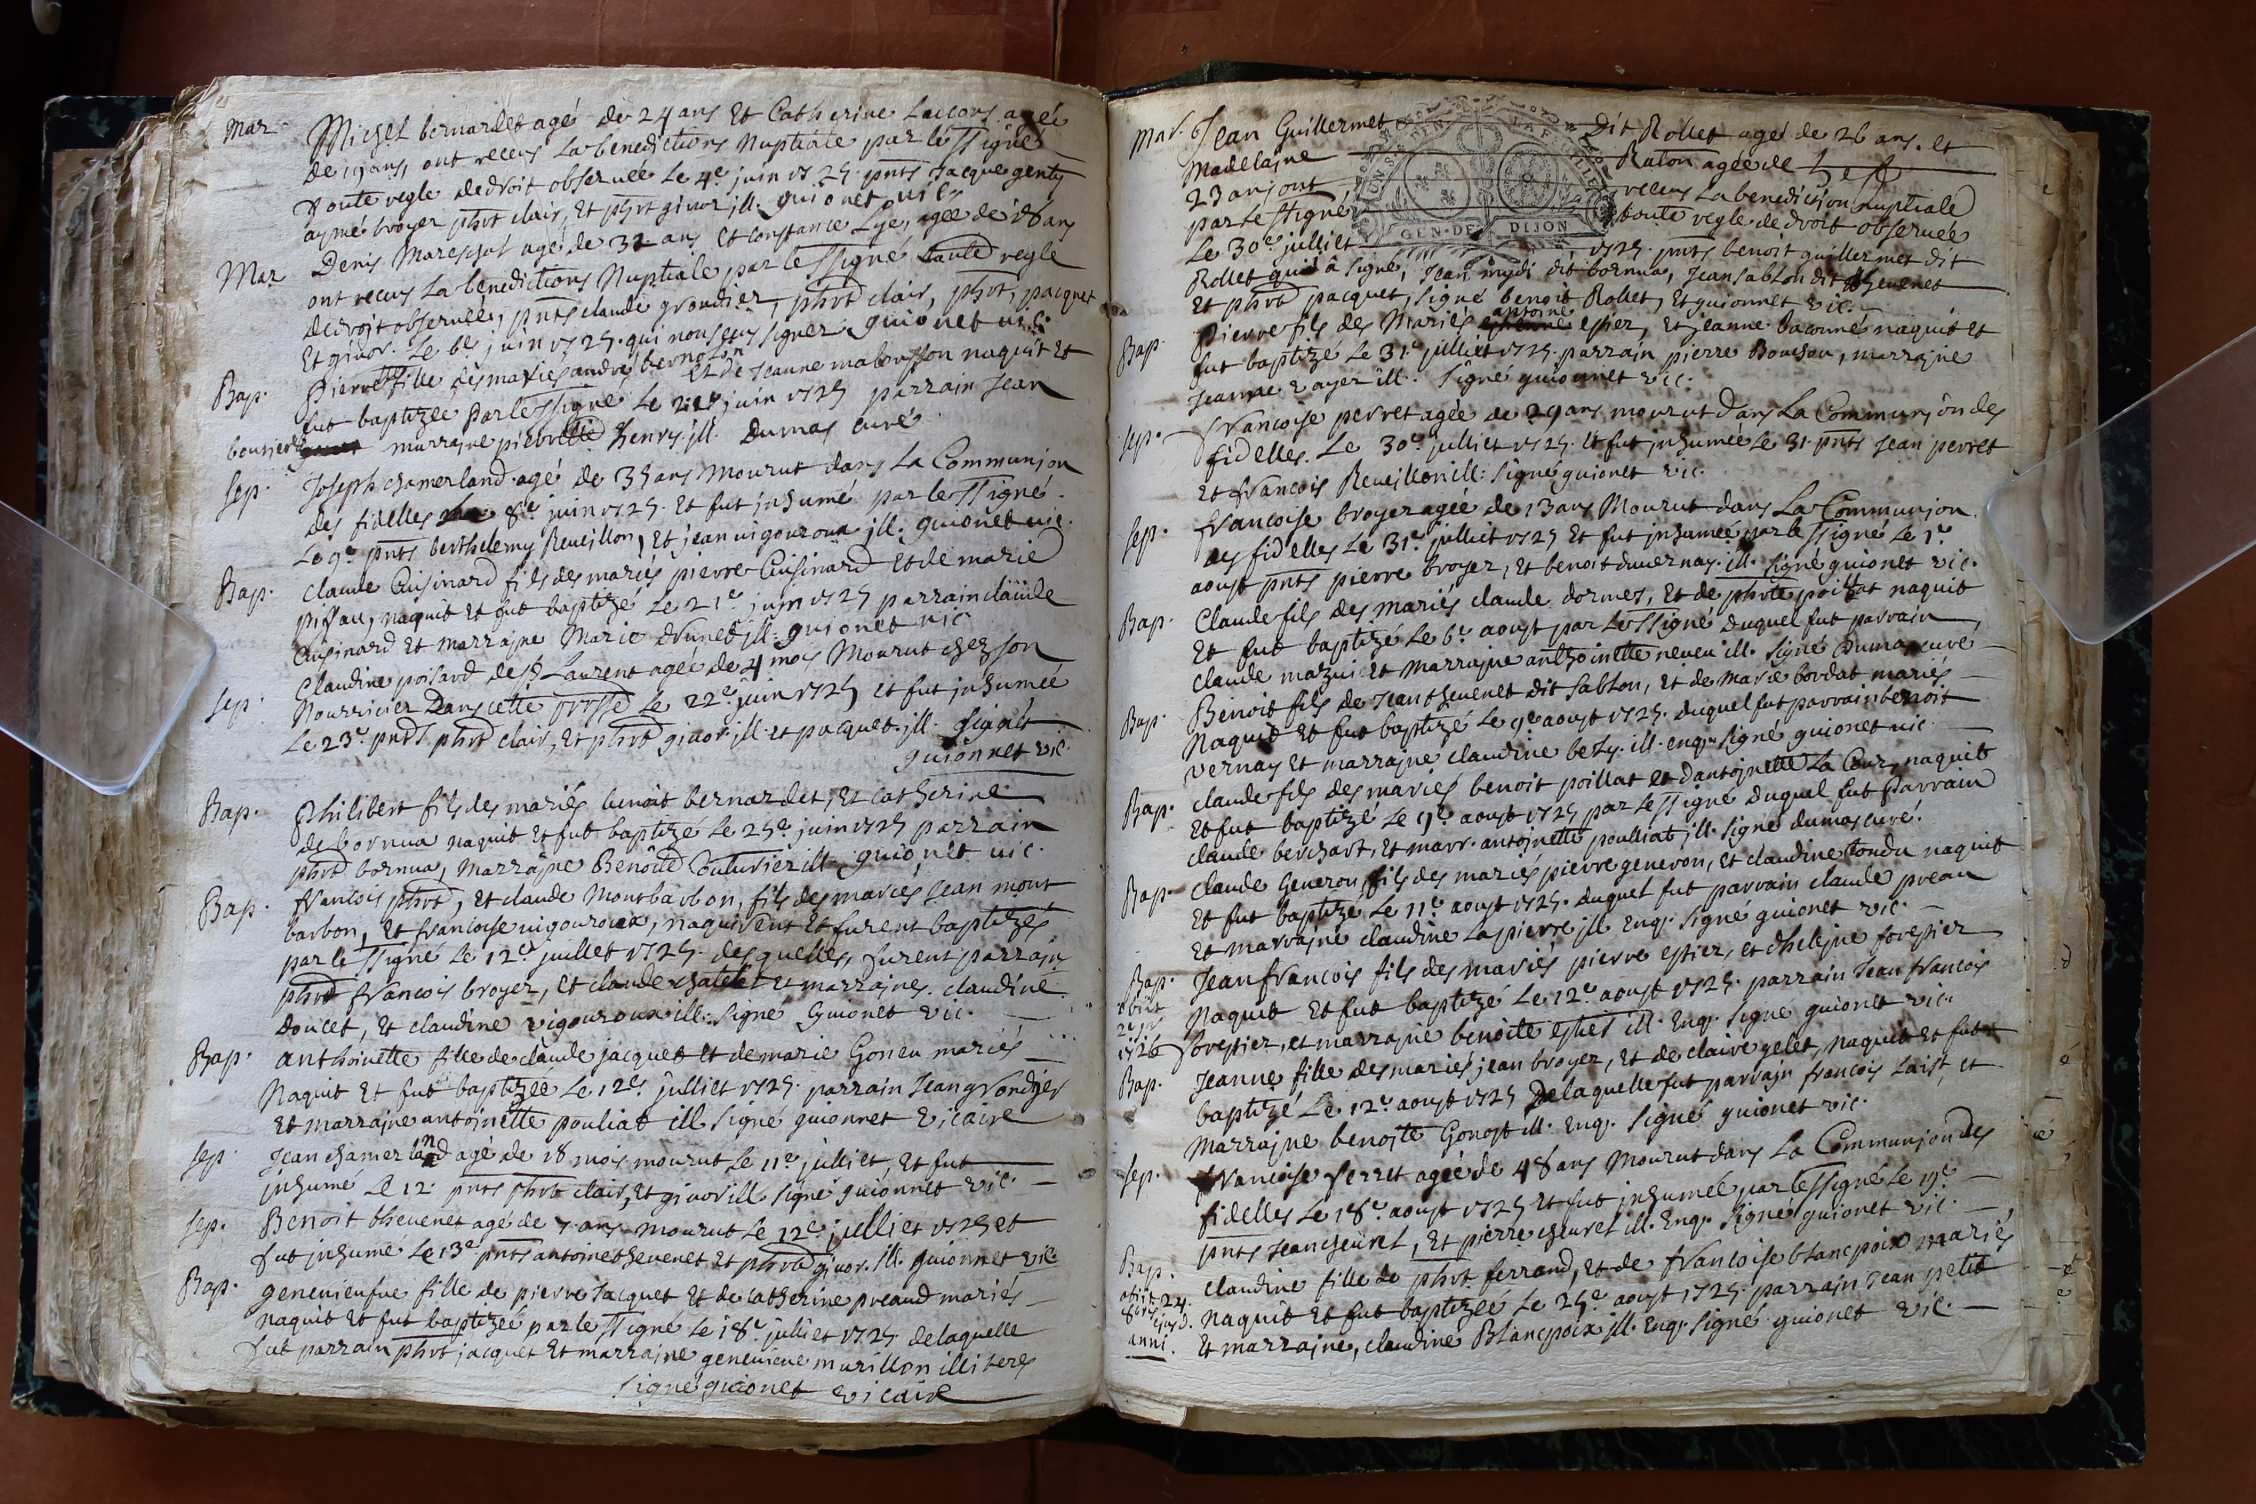 Mar. Michel bernardet agé de 24 ans Et Catherine Laccons agée
de 19 ans, ont recens La benediction Nuptiale par le ssigné
Toute regle de droit observée Le 4e juin 1725. pnts Jacque genty
aymé broyer phrt clair, Et phrt givor ill. guionet vic.
Mar Denis Mareschal agé de 32 ans Et constance Lye, agée de 18 ans
ont recens La benediction Nuptiale par le ssigné toute regle
de droit observée, pnts claude grondier, phrt clair, phrt, pacquet
Et givor. Le 6e juin 1725. qui non sceus signer guionet vic.
Bap. Pierrette fille des mariés andré
Et de Jeanne naquit Et
fut baptizée Par le ssigné Le juin 1725 parrain Jean
bouvier marrajne pierrette Thenry. ill. Dumas curé
Sep. Joseph chamerland agé de 35 ans Mourut dans La Communion
des fidelles 8e juin 1725. Et fut inhumé par le ssigné.
Le 9e pnts berthelemy Reveillon, Et jean vigouroux ill. guionet vic.
Bap. claude Cusinard fils des mariés pierre Cusinard Et de marie
piffau, naquit Et fut baptizé Le 21e juin 1725 parrain claude
Cusinard Et marrajne Marie Drunet ill. guionet vic
Sep. Claudine poisard de St Laurent agée de 4 mois Mourut chez son
Nourricier Dans cette prsse Le 22e juin 1725 Et fut inhumée
Le 23e pnts phrt clair, Et phrt givor. ill. et pacquet. ill. signés
guionnet vic.
Bap. Philibert fils des mariés benoit bernardet, Et Catherine
de bornua naquit Et fut baptizé Le 25e juin 1725 parrain
phrt bornua, Marrajne Benoite Couturier ill. guionet vic.
Bap. francois phrt, Et claude Montbarbon, fils des mariés Jean mont
barbon, Et francoise vigouroux, naquirent Et furent baptizés
par le ssigné Le 12e juillet 1725. desquelles, furent parrajn
phrt francois broyer, Et claude chatelet Et marrajnes. claudine
doucet, Et claudine vigouroux ill. signé Guionet vic.
Bap. anthoinette fille de claude jacquet Et de marie Goneu mariés
Naquit Et fut baptizée Le 12e julliet 1725. parrain Jean grondier
Et marrajne antoinette pouliat ill. signé guionnet vicaire
Sep. Jean chamerland agé de 18 mois mourut Le 11e julliet, Et fut
inhumé Le 12 pnts phrt clair, Et givor ill. signé guionnet vic.
Sep. Benoit thevenet agé de 7 ans mourut Le 12e julliet 1725 et
fut inhumé Le 13e pnts antoine thevenet Et phrt givor. ill. guionnet vic.
Bap. genevieufue fille de pierre Jacquet Et de Catherine preaud mariés
naquit Et fut baptizée par le ssigné Le 18e julliet 1725 de laquelle
fut parrain phrt jacquet Et marrajne genevieve murillon illiteres
signé guionet vicaire
Mar. Jean Guillermet Dit Rollet agé de 26 ans. et
Madelajne Raton agée de
23 ans ont recens La benediction nuptiale
par Le ssigné toute regle de droit observée
Le 30e julliet 1725. pnts benoit guillermet dit
Rollet qui â signé, Jean mydi dit bornua, Jean sablon dit thevenet
Et phrt pacquet, signé benoit Rollet, Et guionnet vic.
antoine
Bap. Pierre fils des Mariés estier, Et jeanne baconne naquit Et
fut baptizé Le 31e julliet 1725. parrajn pierre Bouchou, marrajne
Jeanne royer ill. signé guionnet vic.
Sep. francoise perret agée de 29 ans mourut dans La Communjon des
fidelles. Le 30e julliet 1725. Et fut inhumée Le 31. pnts Jean perret
Et francois Reveillon ill: signé guionet vic.
Sep. francoise broyer agée de 13 ans Mourut dans La Communjon
des fidelles Le 31e julliet 1725 Et fut inhumée par le ssigné Le 1e
aoust pnts pierre broyer, Et benoit duvernay. ill. signé guionet vic.
Bap. Claude fils des mariés claude dormes, Et de phrte poizat naquit
Et fut baptizé Le 6e aoust par Le ssigné Duquel fut parrain,
claude mazui Et marrajne anthoinette neveu ill. signé Dumas curé
Bap. Benoit fils de Jean thevenet dit sablon, Et de marie bordat mariés
Naquit Et fut baptizé Le 9e aoust 1725. duquel fut parrain benoit
vernay Et marrajne claudine bely. ill. enq. signé guionet vic.
Bap. claude fils des mariés benoit poillat et dantojnette La Cour, naquit
Et fut baptizé Le 9e aoust 1725 par Le ssigné Duquel fut Parrain
claude berchart, Et marr. antoinette poulliat, ill. signé dumas curé.
Bap. Claude Generon fils des mariés pierre generon, Et claudine tondu naquit
Et fut baptizé Le 11e aoust 1725. duquel fut parrain claude preau
Et marrajne claudine Lapierre ill. Enq. signé guionet vic.
Bap. Jean francois fils des mariés pierre estier, et dhelejne forestier
obiit Naquit Et fut baptizé Le 12e aoust 1725. parrain Jean francois
1726 forestier, et marrajne benoite estier ill. Enq. signé guionet vic.
Bap. Jeanne fille des mariés jean broyer, Et de claire gelet, Naquit Et fut
baptizé Le 12e aoust 1725 De laquelle fut parrajn francois Laist, et
Marrajne benojte Gonost ill. Enq. signé guionet vic.
Sep. francoise ferret agée de 48 ans Mourut dans La Communjon des
fidelles Le 18e aoust 1725 Et fut inhumée par le ssigné Le 19e
pnts Jean cheuret, Et pierre cheuret ill. Enq. signé guionet vic.
Bap. claudine fille de phrt ferrand, Et de francoise blancpoix mariés
obiit 24. Naquit Et fut baptizée Le 25e aoust 1725. parrajn Jean petit
anni. Et marrajne, claudine Blancpoix ill. Enq. signé guionet vic.
GEN. DE DIJON